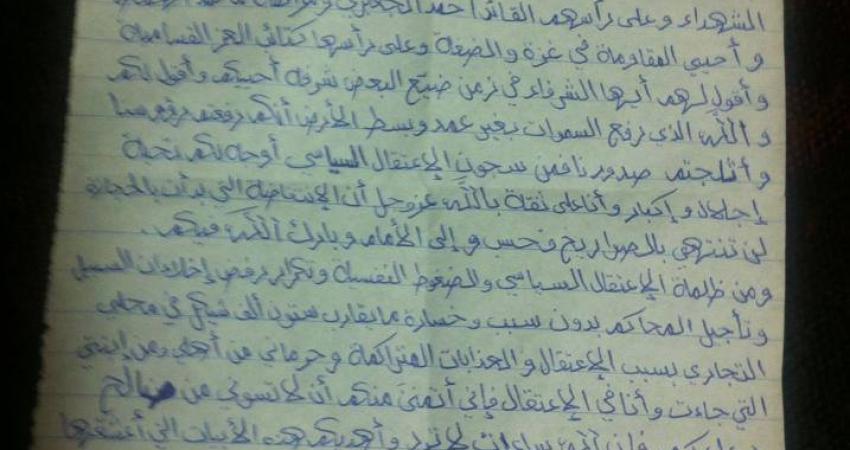 الشهداء وعلى رأسهم القائد أحمد الجعبري
وأحيي المقاومة في غزة والضفة وعلى رأسها كتائب العز القسامية
وأقول لهم أيها الشرفاء في زمن ضيّع البعض شرفه أحييكم وأقول لكم
والله الذي رفع السموات بغير عمد وبسط الأرض أنكم رفعتم رؤوسنا
وأثلجتم صدورنا فمن سجون الإعتقال السياسي أوجه لكم تحية
إجلال وإكبار وأنا على ثقة بالله عز وجل أن الإنتفاضة التي بدأت بالحجارة
لن تنتهي بالصواريخ فحسب وإلى الأمام وبارك الله فيكم.
ومن ظلمة الإعتقال السياسي والضغوط النفسية وتكرار رفض إخلاءات السبيل
وتأجيل المحاكم بدون سبب وخسارة ما يقارب ستون ألف شيكل في محلي
التجاري بسبب الإعتقال والعذابات المتراكمة وحرماني من أهلي ومن إبنتي
التي جاءت وأنا في الإعتقال فإني أتمنى منكم أن لا تنسوني من صالح
لا ترد وأهديكم هذه الأبيات التي أعشقها